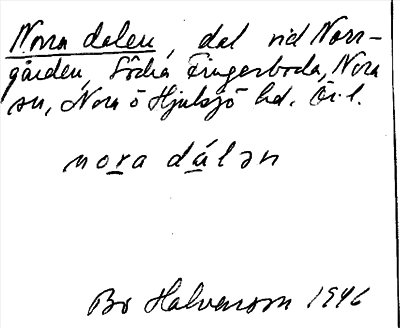 Norra dalen, dal vid Norr-
gården, Södra Fingerboda, Nora
sn, Nora o Hjulsjö hd. Ör. l.
nora dálən
Bo Halvarson 1946